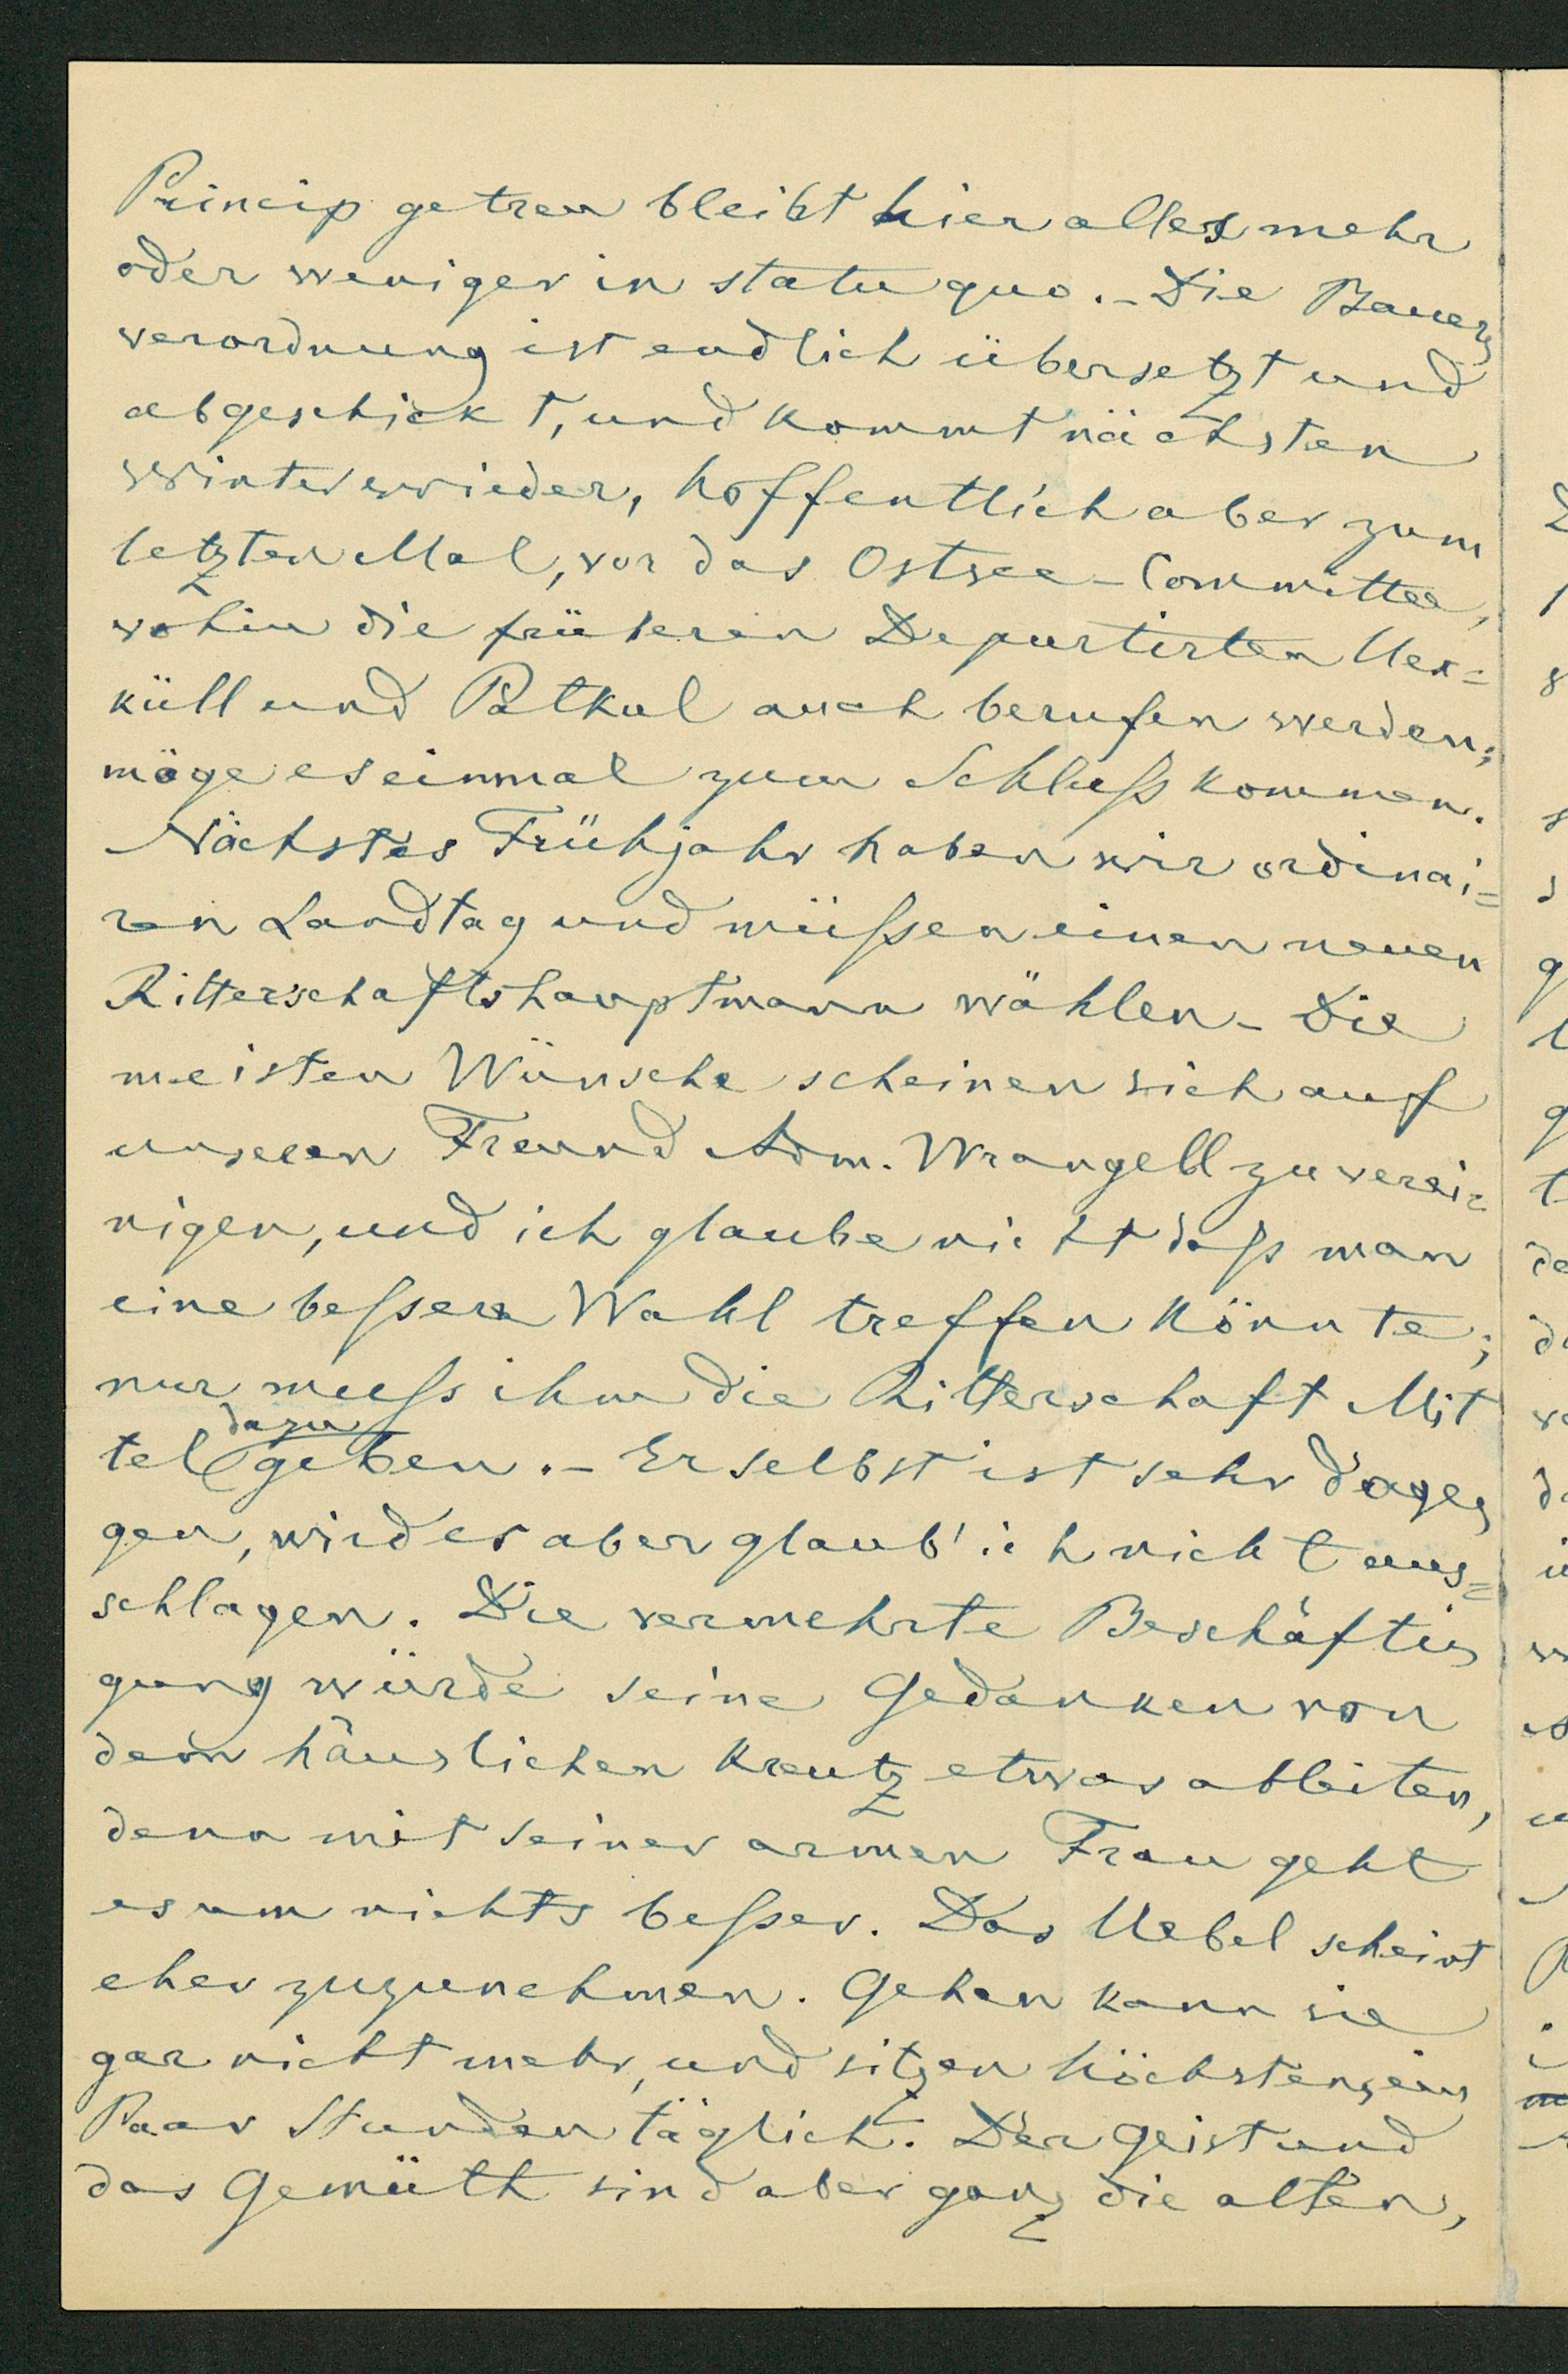 Princip getreu bleibt hier alles mehr
oder weniger in statu quo.– Die Bauer-
verordnung ist endlich übersetzt und
abgeschickt, und kommt nächsten
Winter wieder, hoffentlich aber zum
letzten Mal, vor das Ostsee-Committee,
wohin die früheren Depurtirten Uex=
küll und Patkul auch berufen werden;
möge es einmal zum Schluß kommen.
Nächstes Frühjahr haben wir ordinai=
ren Landtag und müßen einen neuen
Ritterschaftshauptmann wählen – Die
meisten Wünsche scheinen sich auf
unseren Freund Adm. Wrangell zu verei=
nigen, und ich glaube nicht daß man
eine beßere Wahl treffen könnte;
nur muß ihm die Ritterschaft Mit
dazu
tel geben.– Er selbst ist sehr dage-
gen, wird es aber glaub' ich nicht aus=
schlagen. Die vermehrte Beschäfti-
gung würde seine Gedanken von
dem häuslichen Kreutz etwas ableiten,
denn mit seiner armen Frau geht
es um nichts beßer. Das Uebel scheint
eher zuzunehmen. Gehen kann sie
gar nicht mehr, und sitzen höchstens ein
Paar Stunden täglich. Der Geist und
das Gemüth sind aber ganz die alten,